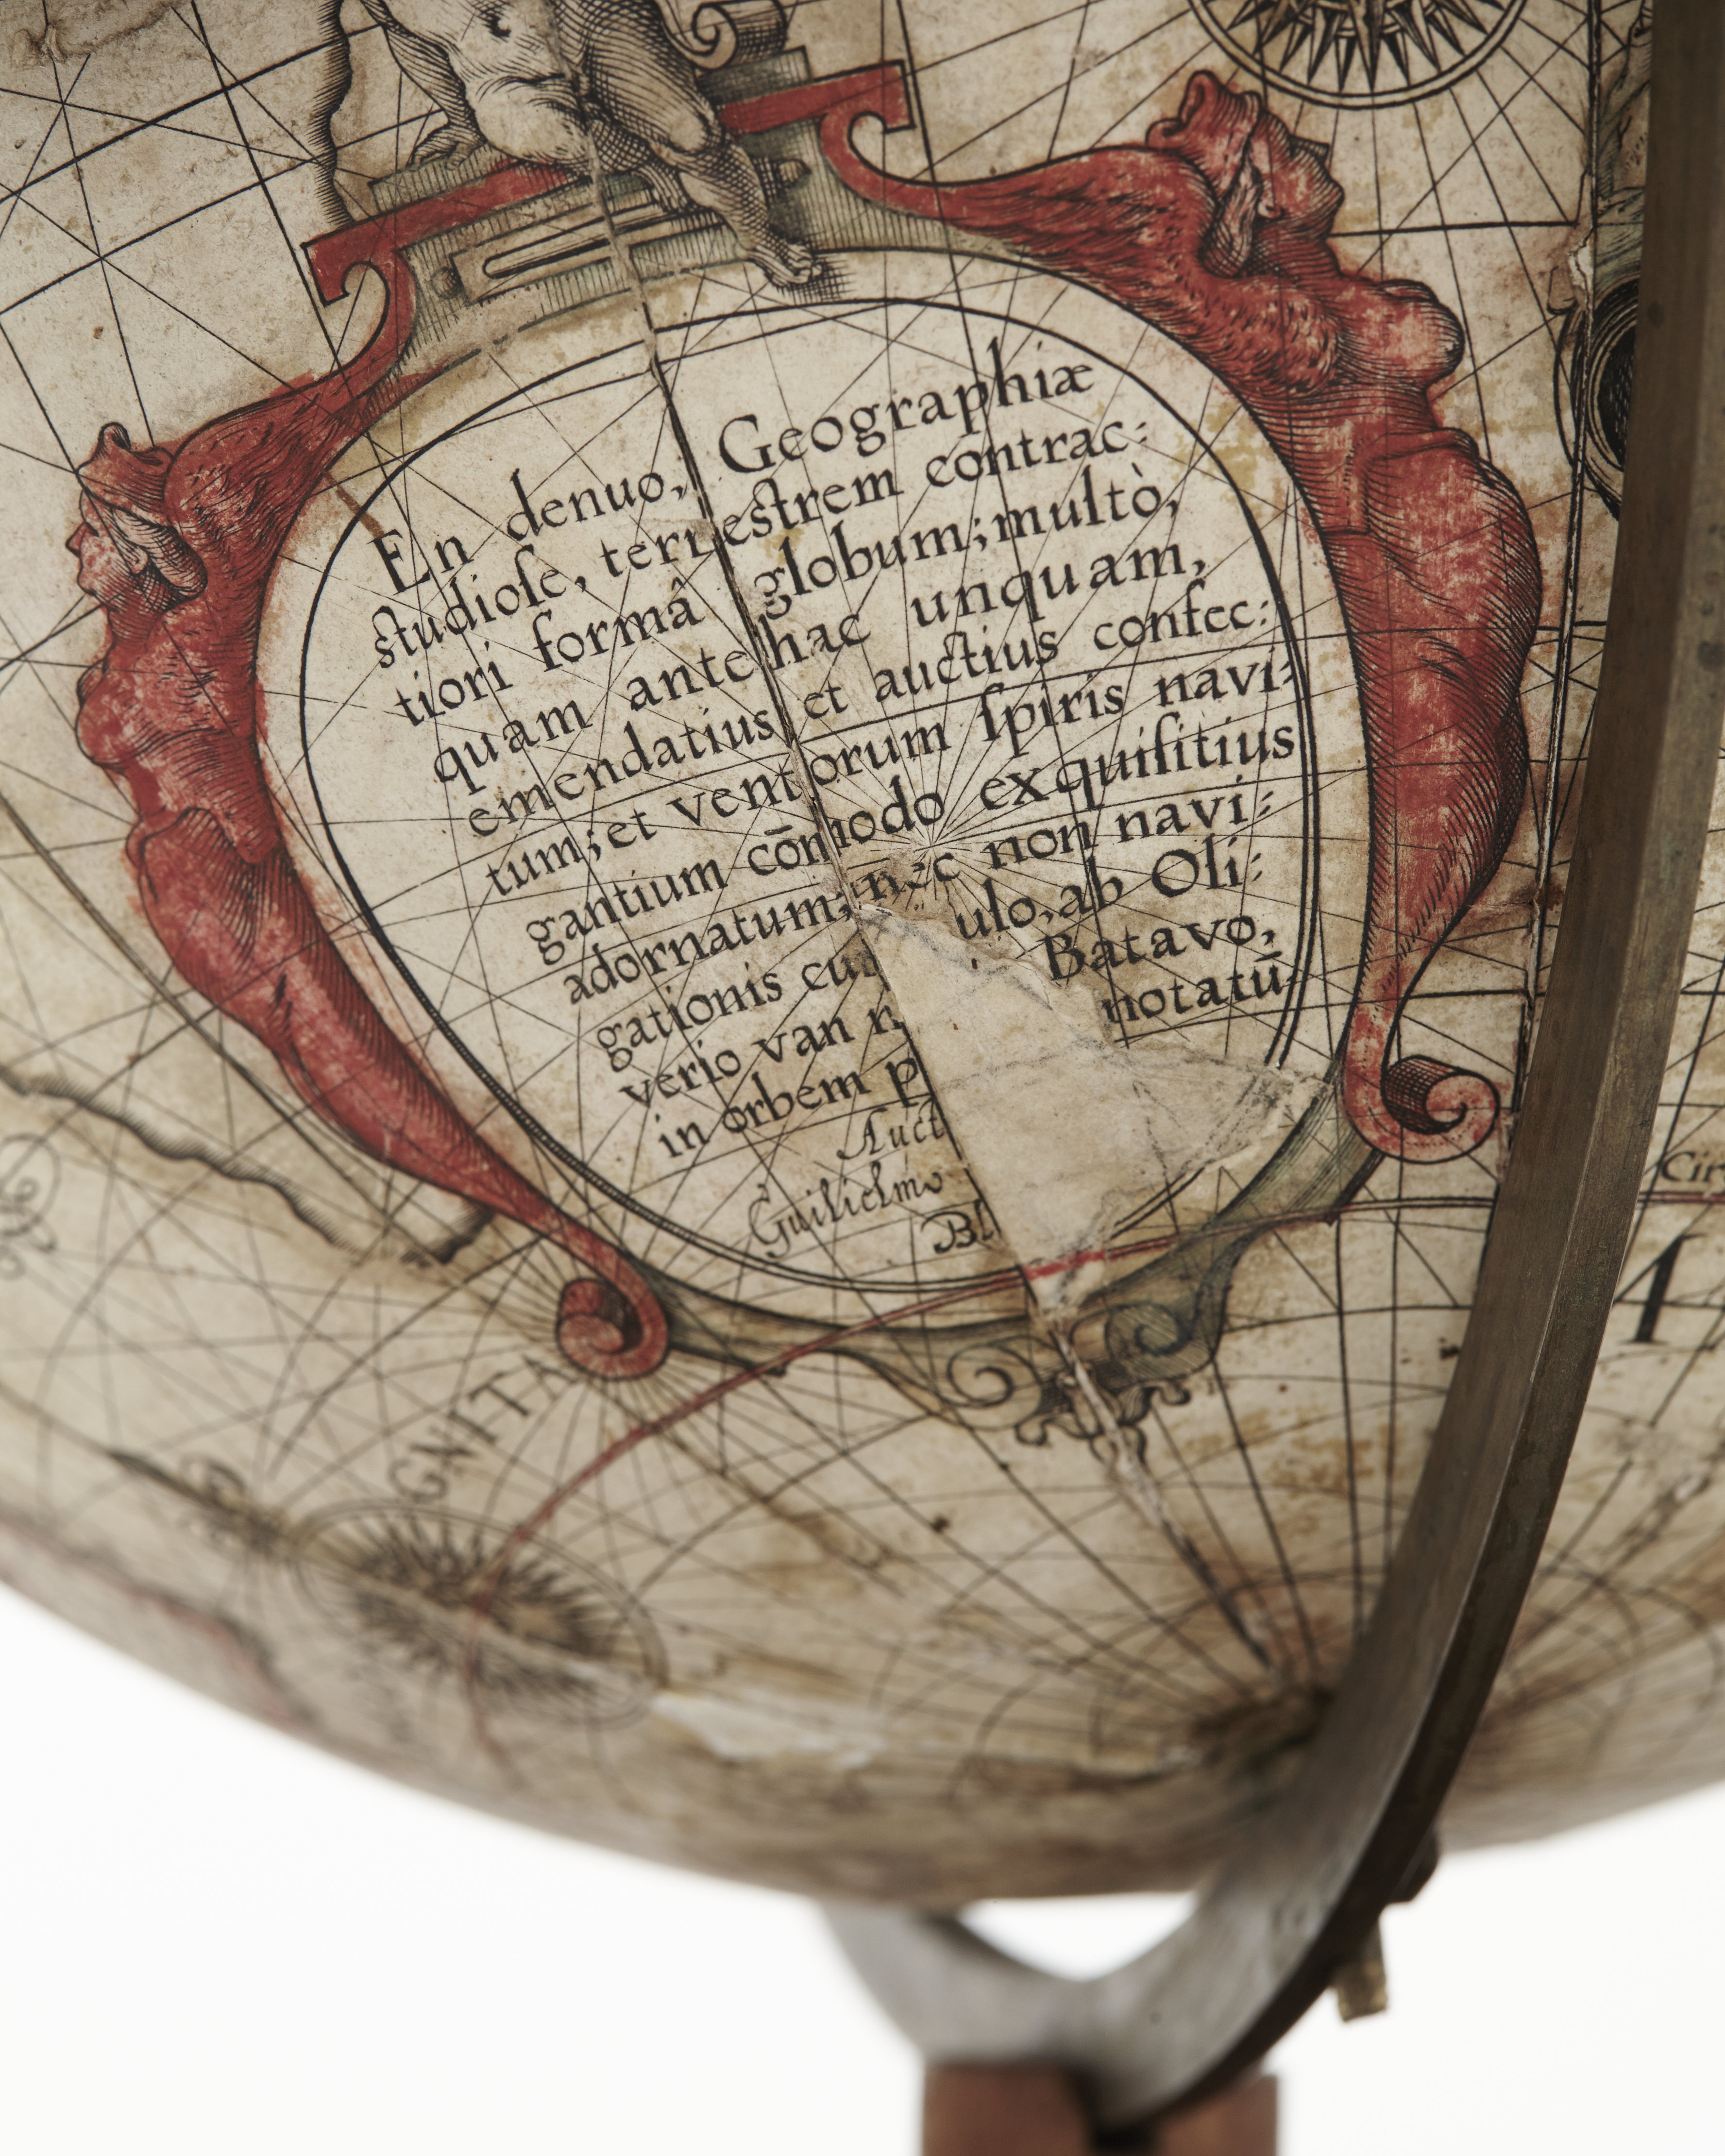 En denuo, Geographiæ
studiose, terrestrem contrac:
tiori formâ globum; multò,
quam ante hac unquam,
emendatius et auctius confec:
tum; et ventorum spiris navi:
gantium com̄odo exquisitius
adornatum; nec non navi:
gationis cu ulo, ab Oli:
verio van n Batavo,
in orbem p notatū
Auct
Guilielmo
Bl
GNITA
Cir